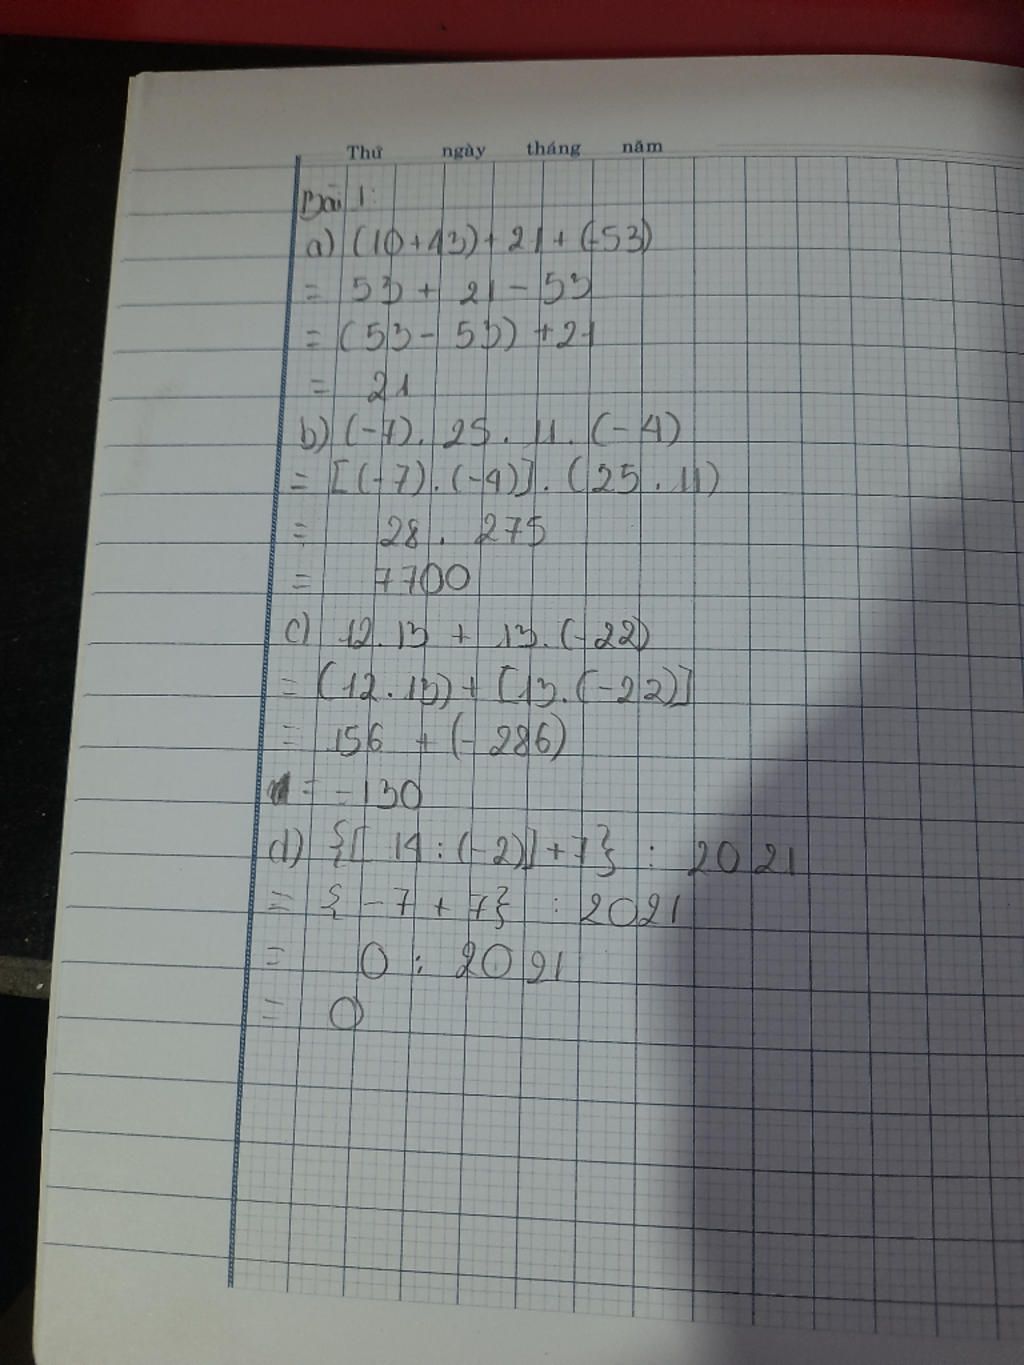 Thứ ngày tháng năm
Bài 1:
a) (10+43)+21+(-53)
= 53+ 21 - 53
= (53 - 53) +21
= 21
b) (-7). 25. 11. (-4)
= [(-7).(-4)]. (25.11)
= 28. 275
= 7700
c) 12.13 + 13.(-22)
= (12.13)+ [13.(-22)]
= 156 + (-286)
= -130
d) {[ 14:(-2)]+7} : 2021
= {-7 + 7} : 2021
= 0 : 2021
= 0